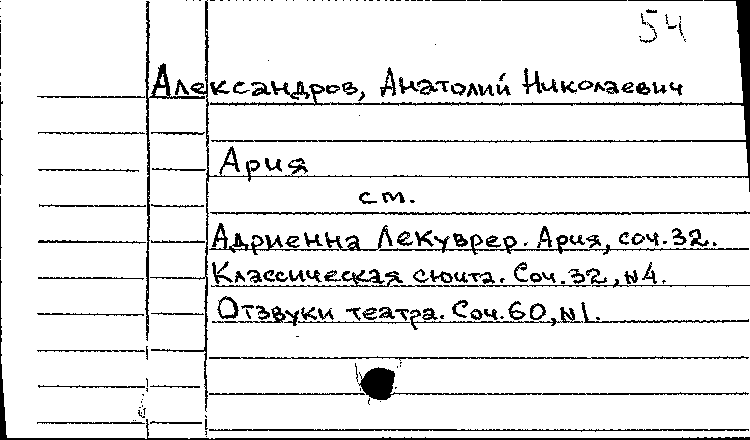 54
Александров, Анатолий Николаевич
Ария
ст.
Адриенна Лекуврер. Ария, соч. 32.
Классическая сюита. Соч. 32, №4.
Отзвуки театра. Соч. 60, №1.